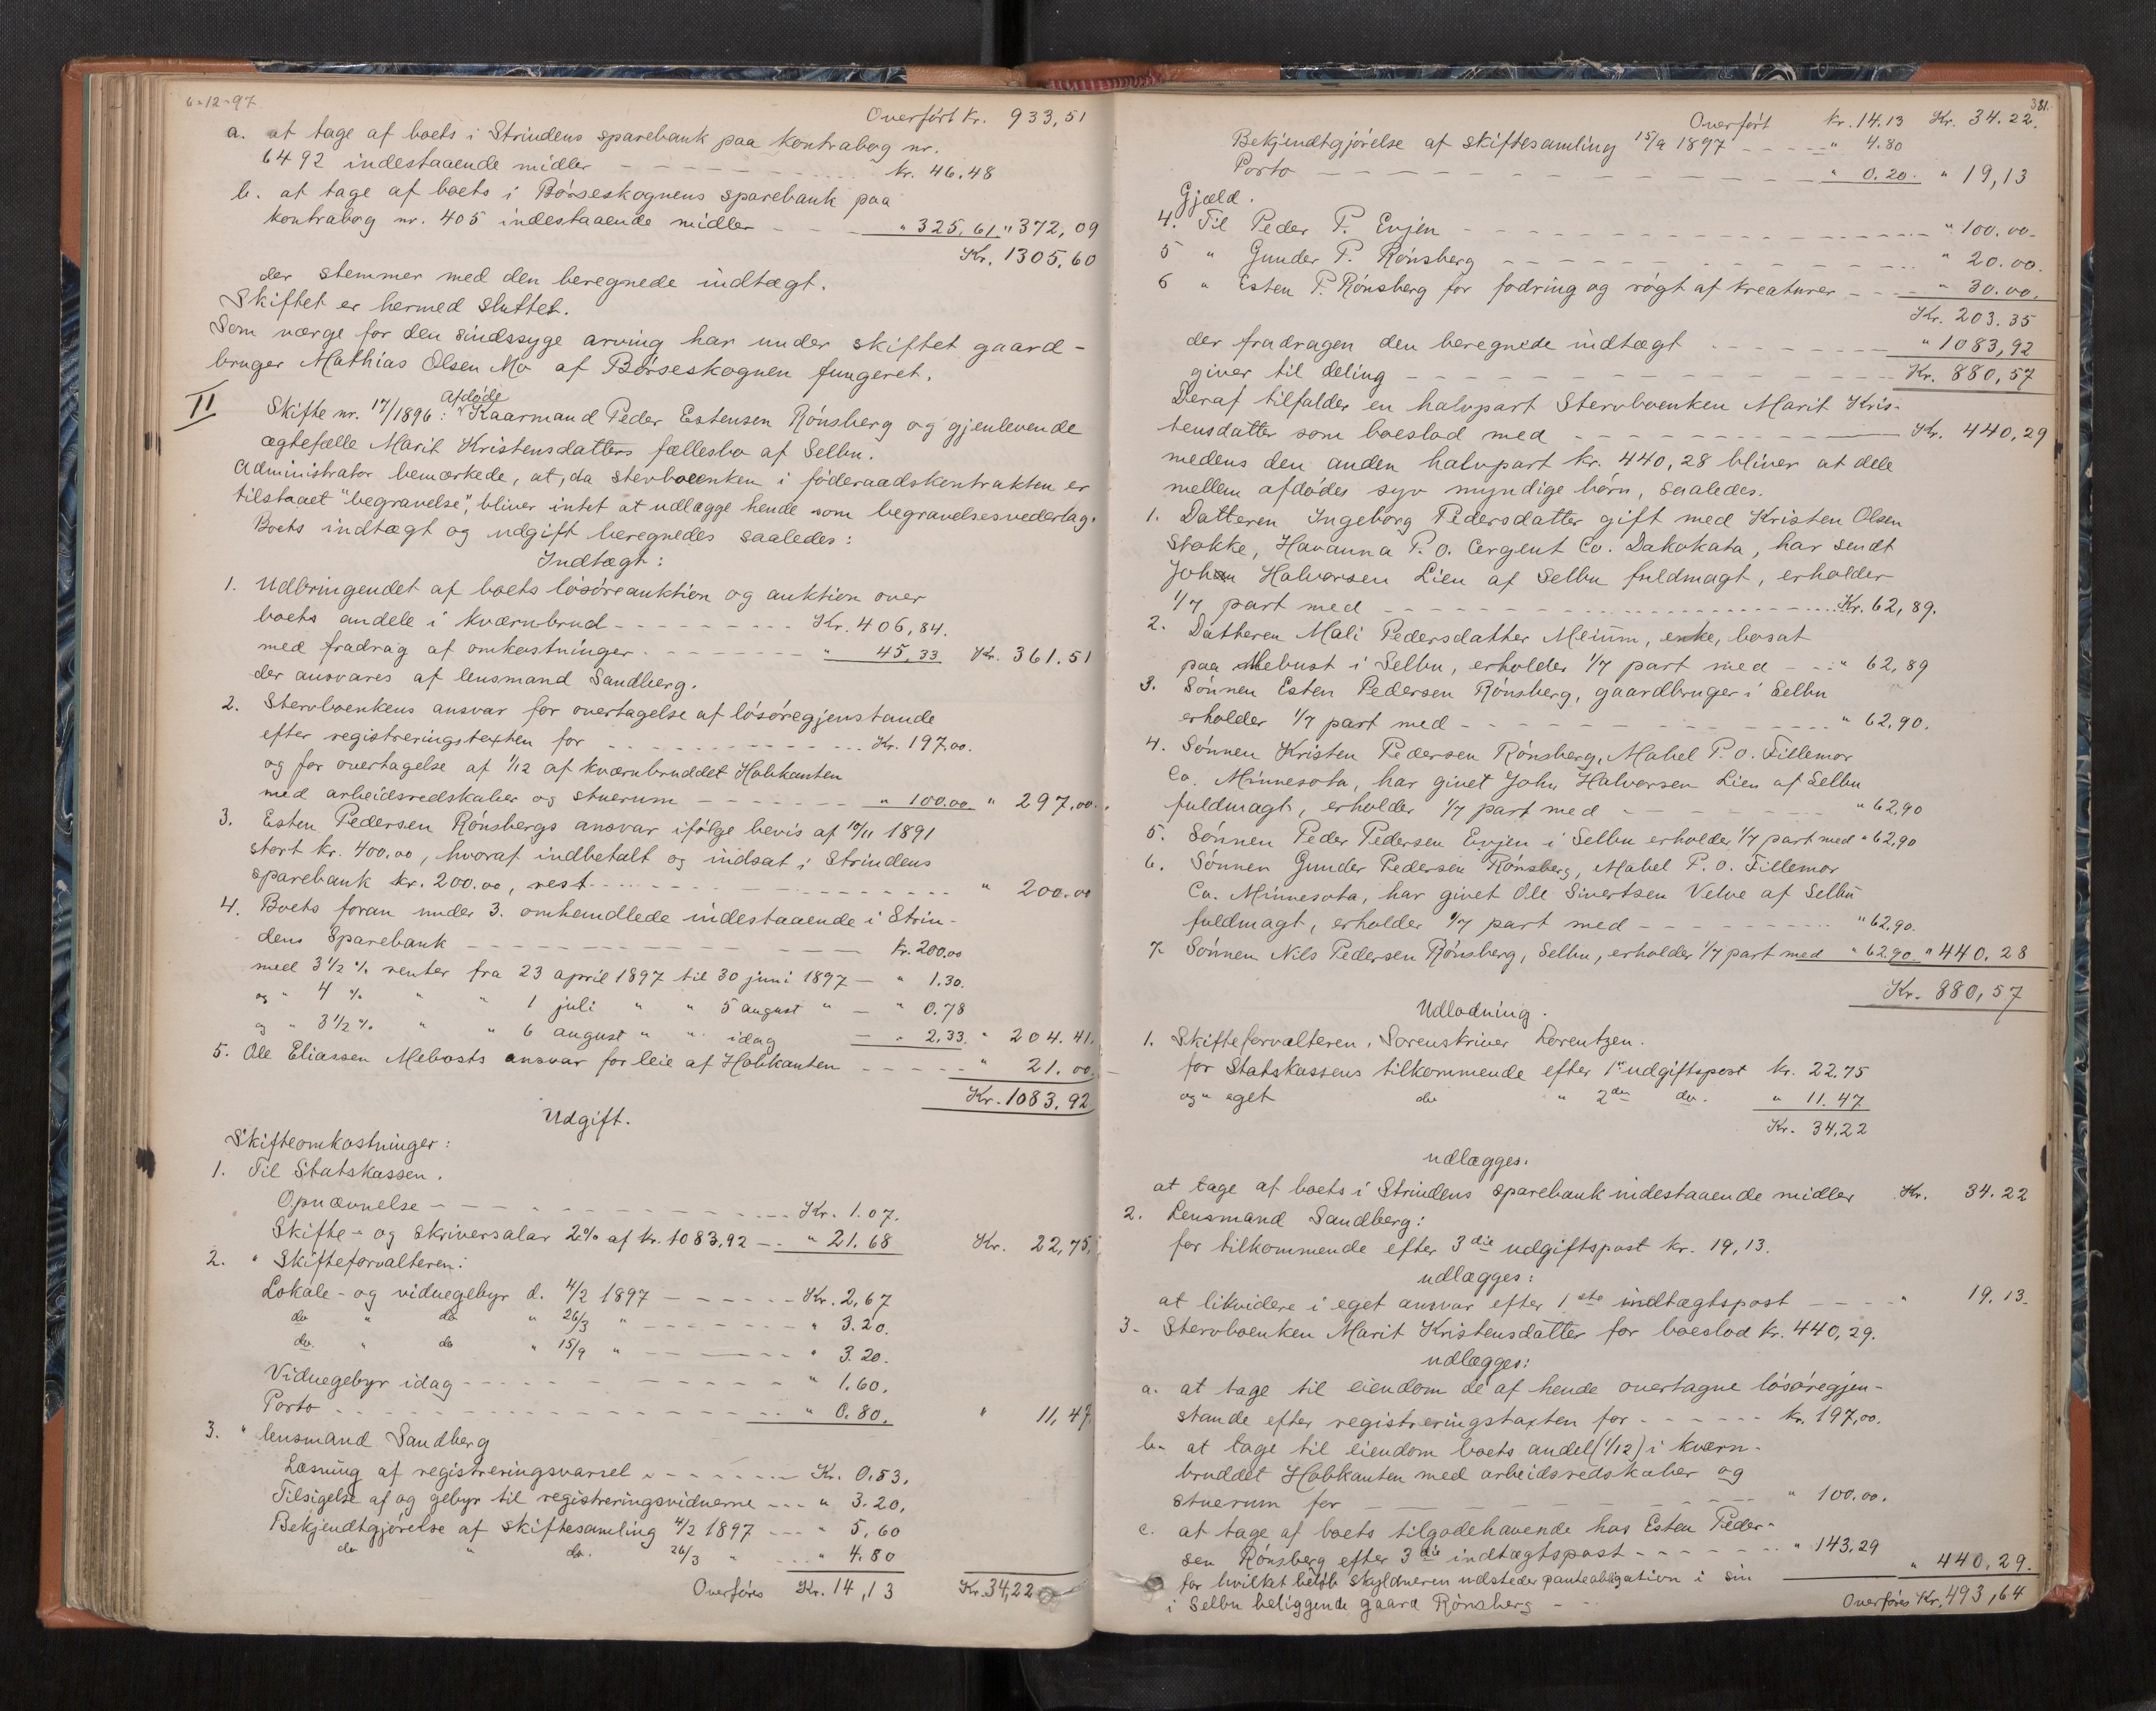 6-12-97.
Overført Kr. 933,51
a. at tage af boets i Strindens sparebank paa kontrabog nr.
6492 indestaaende midler - - - kr. 46.48
b. at tage af boets i Børseskognens sparebank paa
kontrabog nr. 405 indestaaende midler - - - " 325,61 " 372,09
Kr. 1305.60
der stemmer med den beregnede indtægt.
Skiftet er hermed sluttet.
Som værge for den sindssyge arving har under skiftet gaard-
bruger Mathias Olsen Mo af Børseskognen fungeret.
II
Afdøde
Skifte nr. 17/1896: Kaarmand Peder Estensen Rønsberg og gjenlevende
ægtefælle Marit Kristensdatters fællesbo af Selbu.
Administrator bemærkede, at, da stervboenken i føderaadskontrakten er
tilstaaet "begravelse", bliver intet at udlægge hende som begravelsesvederlag.
Boets indtægt og udgift beregnedes saaledes:
Indtægt:
1. Udbringendet af boets løsøreauktion og auktion over
boets andele i kværnbrud - - - Kr. 406,84.
med fradrag af omkostninger - - - " 45,33 Kr. 361.51
der ansvares af lensmand Sandberg.
2. Stervboenkens ansvar for overtagelse af løsøregjenstande
efter registreringstaxten for - - - Kr. 197.00.
og for overtagelse af 1/12 af kværnbruddet Høbkanten
med arbeidsredskaber og stuerum - - - " 100.00 " 297,00.
3. Esten Pedersen Rønsbergs ansvar ifølge bevis af 10/11 1891
stort kr. 400.00, hvoraf indbetalt og indsat i Strindens
sparebank kr. 200.00, rest - - - " 200.00
4. Boets foran under 3. omhandlede indestaaende i Strin-
dens Sparebank - - - Kr. 200.00
med 3 1/2 % renter fra 23 april 1897 til 30 juni 1897 - " 1.30.
og " 4 % " " 1 juli " " 5 august " - " 0.78
og " 3 1/2 % " " 6 august " " idag - " 2,33. " 204.41.
5. Ole Eliassen Mebosts ansvar for leie af Høbkanten - - - " 21.00.
Kr. 1083.92
Udgift.
Skifteomkostninger:
1. Til Statskassen.
Opnævnelse - - - Kr. 1.07.
Skifte- og skriversalar 2% af kr. 1083.92 - " 21.68 Kr. 22,75.
2. " Skifteforvalteren:
Lokale- og vidnegebyr d. 4/2 1897 - - - Kr. 2,67
do " do " 26/3 " - - - " 3.20.
do. " do " 15/9 " - - - " 3.20.
Vidnegebyr idag - - - " 1.60.
Porto - - - " 0.80. " 11,47.
3. " lensmand Sandberg
Læsning af registreringsvarsel - - - Kr. 0.53.
Tilsigelse af og gebyr til registreringsvidnerne - - - " 3.20.
Bekjendtgjørelse af skiftesamling 4/2 1897 - - - " 5,60
do " do. 26/3 " - - - " 4.80
Overføres Kr. 14,13 Kr. 34,22
381.
Overført kr. 14.13 Kr. 34.22.
Bekjendtgjørelse af skiftesamling 15/9 1897 - - - " 4.80
Porto - - - " 0.20. " 19,13
Gjæld.
4. Til Peder P. Evjen - - - " 100.00.
5 " Gunder P. Rønsberg - - - " 20.00.
6 " Esten P. Rønsberg for fodring og røgt af kreaturer - - - " 30.00.
Kr. 203.35
der fradragen den beregnede indtægt - - - " 1083,92
giver til deling - - - Kr. 880,57
Deraf tilfalder en halvpart Stervboenken Marit Kris-
tensdatter som boeslod med - - - Kr. 440,29
medens den anden halvpart kr. 440,28 bliver at dele
mellem afdødes syv myndige børn, saaledes.
1. Datteren Ingeborg Pedersdatter gift med Kristen Olsen
Stokke, Havanna P.O. Cergent Co. Dakokata, har sendt
John Halvorsen Lien af Selbu fuldmagt, erholder
1/7 part med - - - Kr. 62,89.
2. Datteren Mali Pedersdatter Meium, enke, bosat
paa Mebust i Selbu, erholder 1/7 part med - - - " 62,89
3. Sønnen Esten Pedersen Rønsberg, gaardbruger i Selbu
erholder 1/7 part med - - - " 62,90.
4. Sønnen Kristen Pedersen Rønsberg, Mabel P.O. Fillemor
Co. Minnesota, har givet John Halvorsen Lien af Selbu
fuldmagt, erholder 1/7 part med - - - " 62,90
5. Sønnen Peder Pedersen Evjen i Selbu erholder 1/7 part med " 62,90
6. Sønnen Gunder Pedersen Rønsberg, Mabel P.O. Fillemor
Co. Minnesota, har givet Ole Sivertsen Velve af Selbu
fuldmagt, erholder 1/7 part med - - - " 62,90.
7. Sønnen Nils Pedersen Rønsberg, Selbu, erholder 1/7 part med " 62.90 " 440.28
Kr. 880,57
Udlodning.
1. Skifteforvalteren, Sorenskriver Lorentzen.
for Statskassens tilkommende efter 1ste udgiftspost kr. 22.75
og " eget do " 2den do. " 11.47
Kr. 34,22
udlægges:
at tage af boets i Strindens sparebank indestaaende midler Kr. 34.22
2. Lensmand Sandberg:
for tilkommende efter 3die udgiftspost kr. 19,13.
udlægges:
at likvidere i eget ansvar efter 1ste indtægtspost - - - " 19.13.
3. Stervboenken Marit Kristensdatter for boeslod kr. 440,29.
udlægges:
a. at tage til eiendom de af hende overtagne løsøregjen-
stande efter registreringstaxten for - - - kr. 197,00.
b. at tage til eiendom boets andel (1/12) i kværn-
bruddet Høbkanten med arbeidsredskaber og
stuerum for - - - " 100.00.
c. at tage af boets tilgodehavende hos Esten Peder-
sen Rønsberg efter 3die indtægtspost - - - " 143.29 " 440.29.
for hvilket beløb skyldneren udsteder panteobligation i sin
i Selbu beliggende gaard Rønsberg - -
Overføres Kr. 493,64